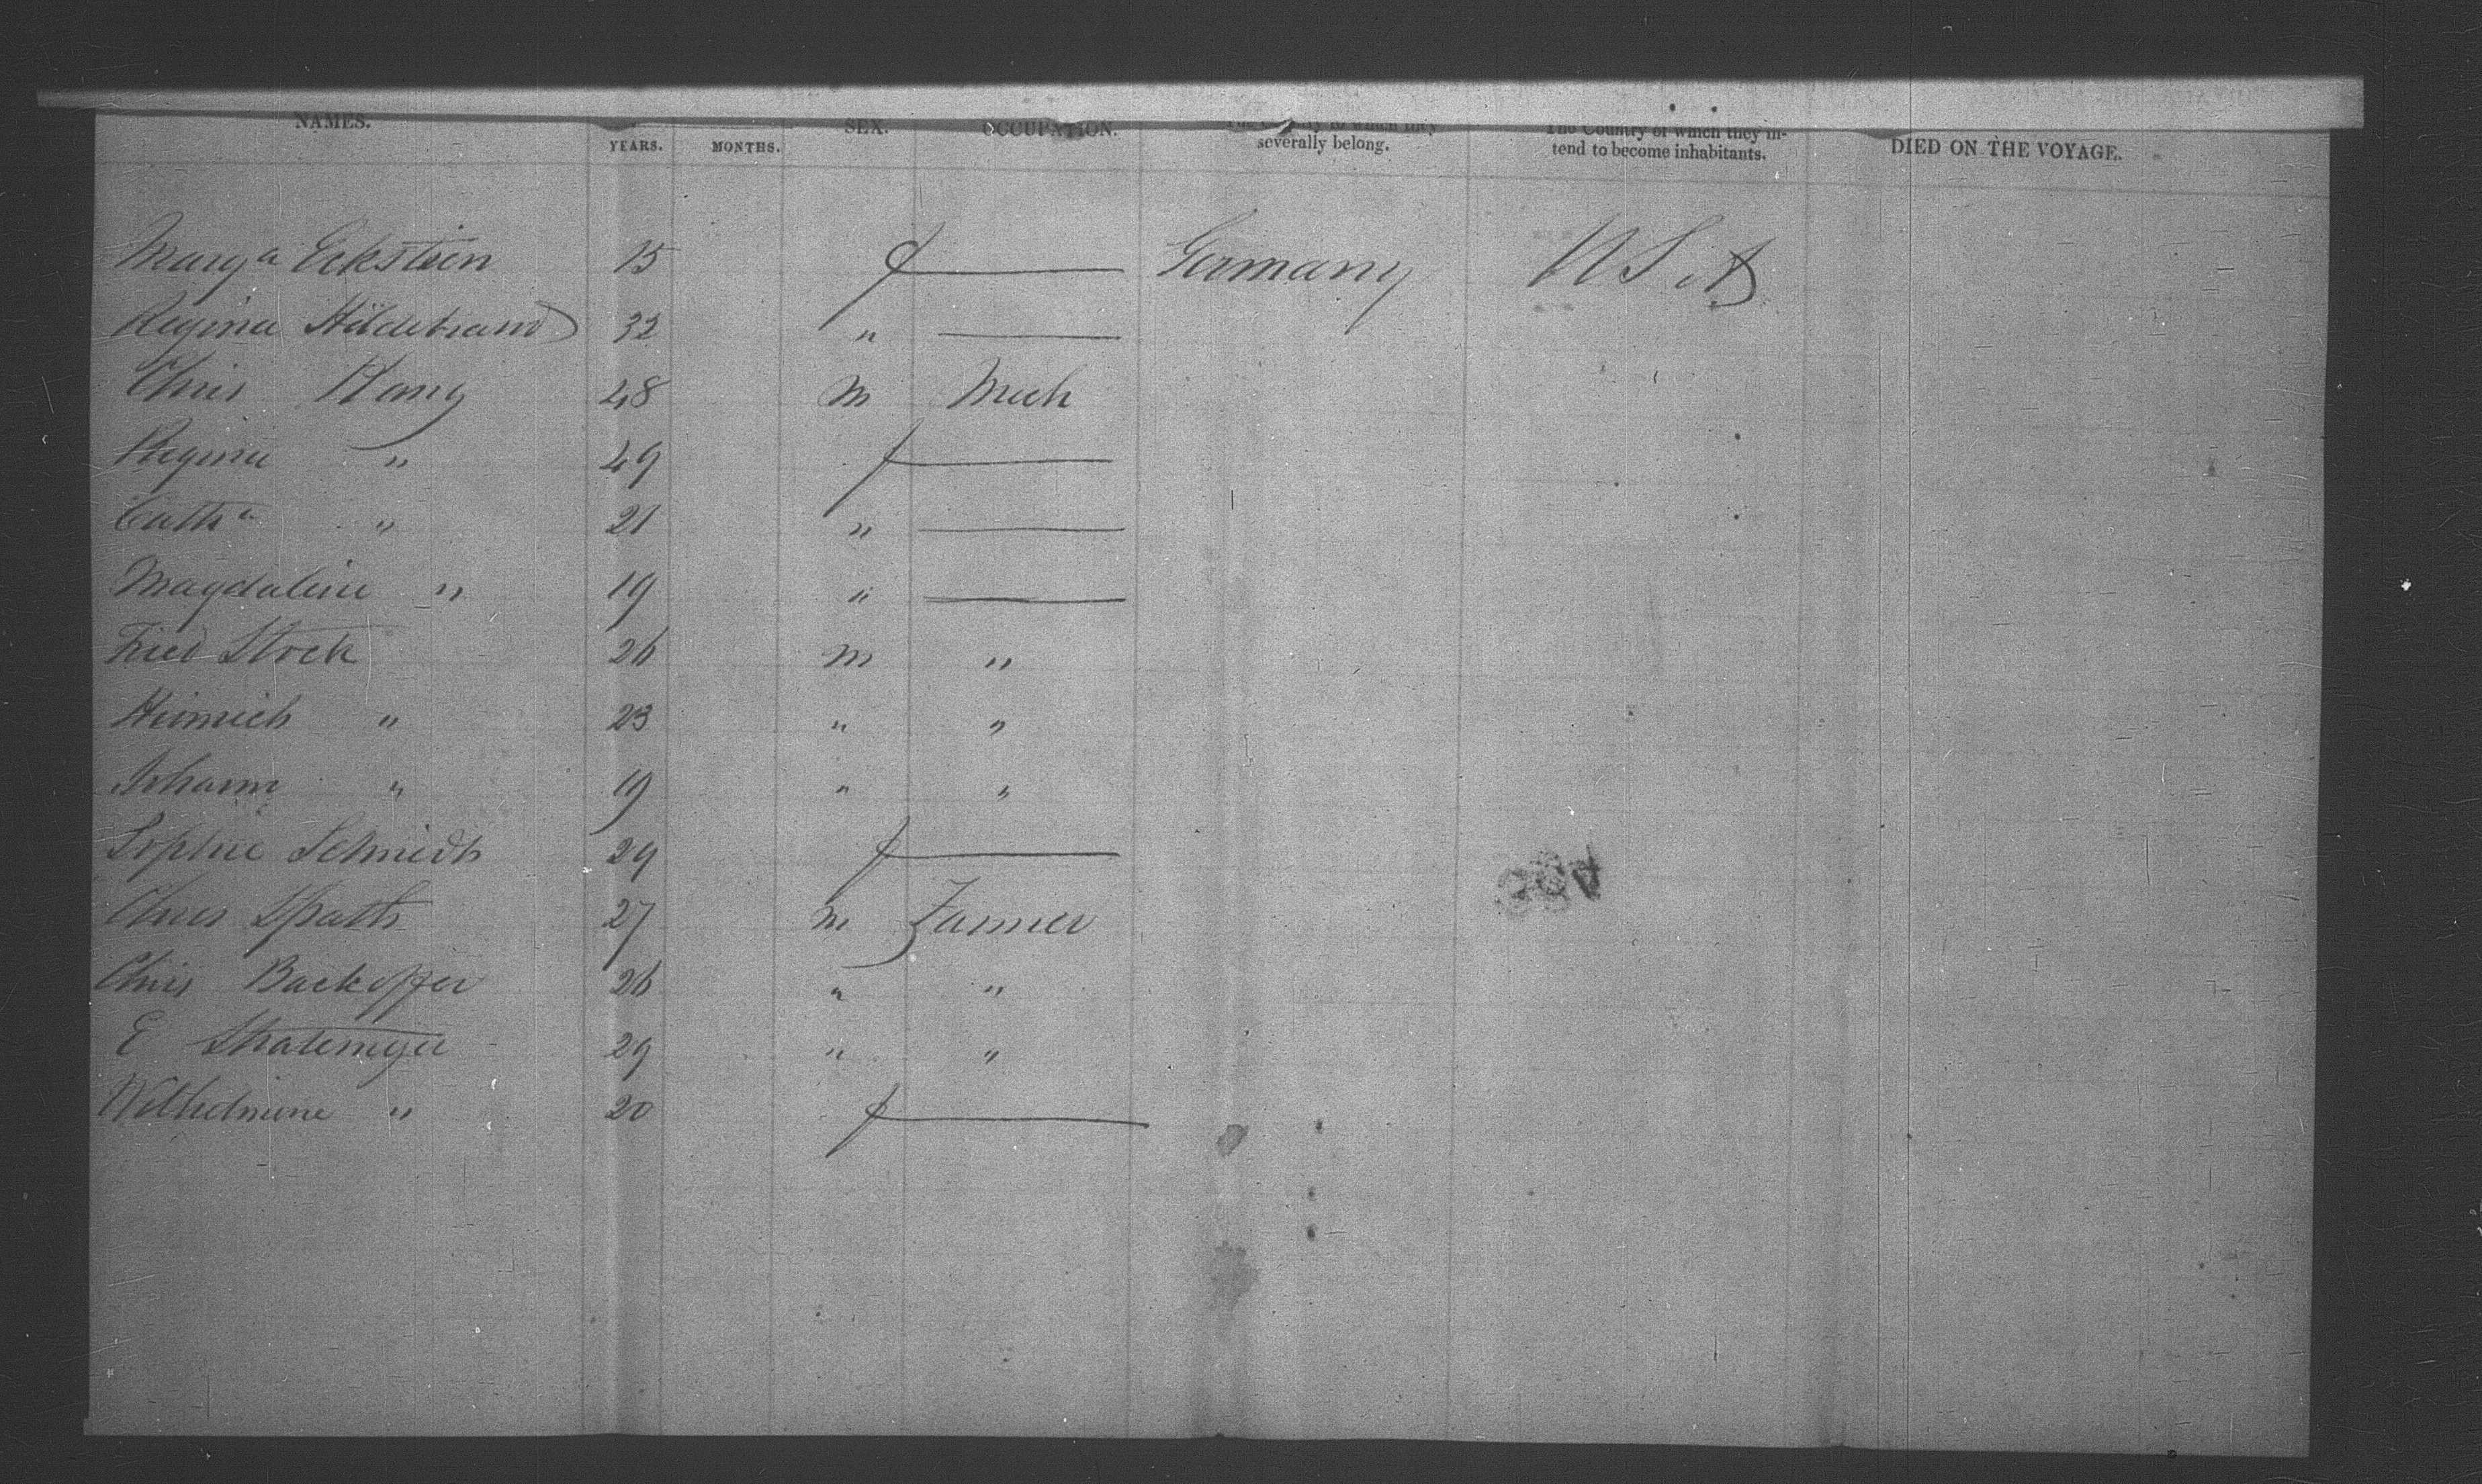 NAMES. SEX. OCCUPATION. The Country to which they The Country of which they in-
YEARS. MONTHS. severally belong. tend to become inhabitants. DIED ON THE VOYAGE.
Marg a Eckstein 15 f — Germany U S A
Regina Hildebrand 32 " —
Chris Hang 48 m Mech
Regina " 49 f —
Cath a " 21 " —
Magdaline " 19 " —
Fried Stock 26 m "
Heinrich " 23 " "
Johann " 19 " "
Sophie Schmidt 29 f —
Chris Spath 27 m Farmer
Chris Backoffer 26 " "
E Stratemeyer 29 " "
Wilhelmine " 20 f —